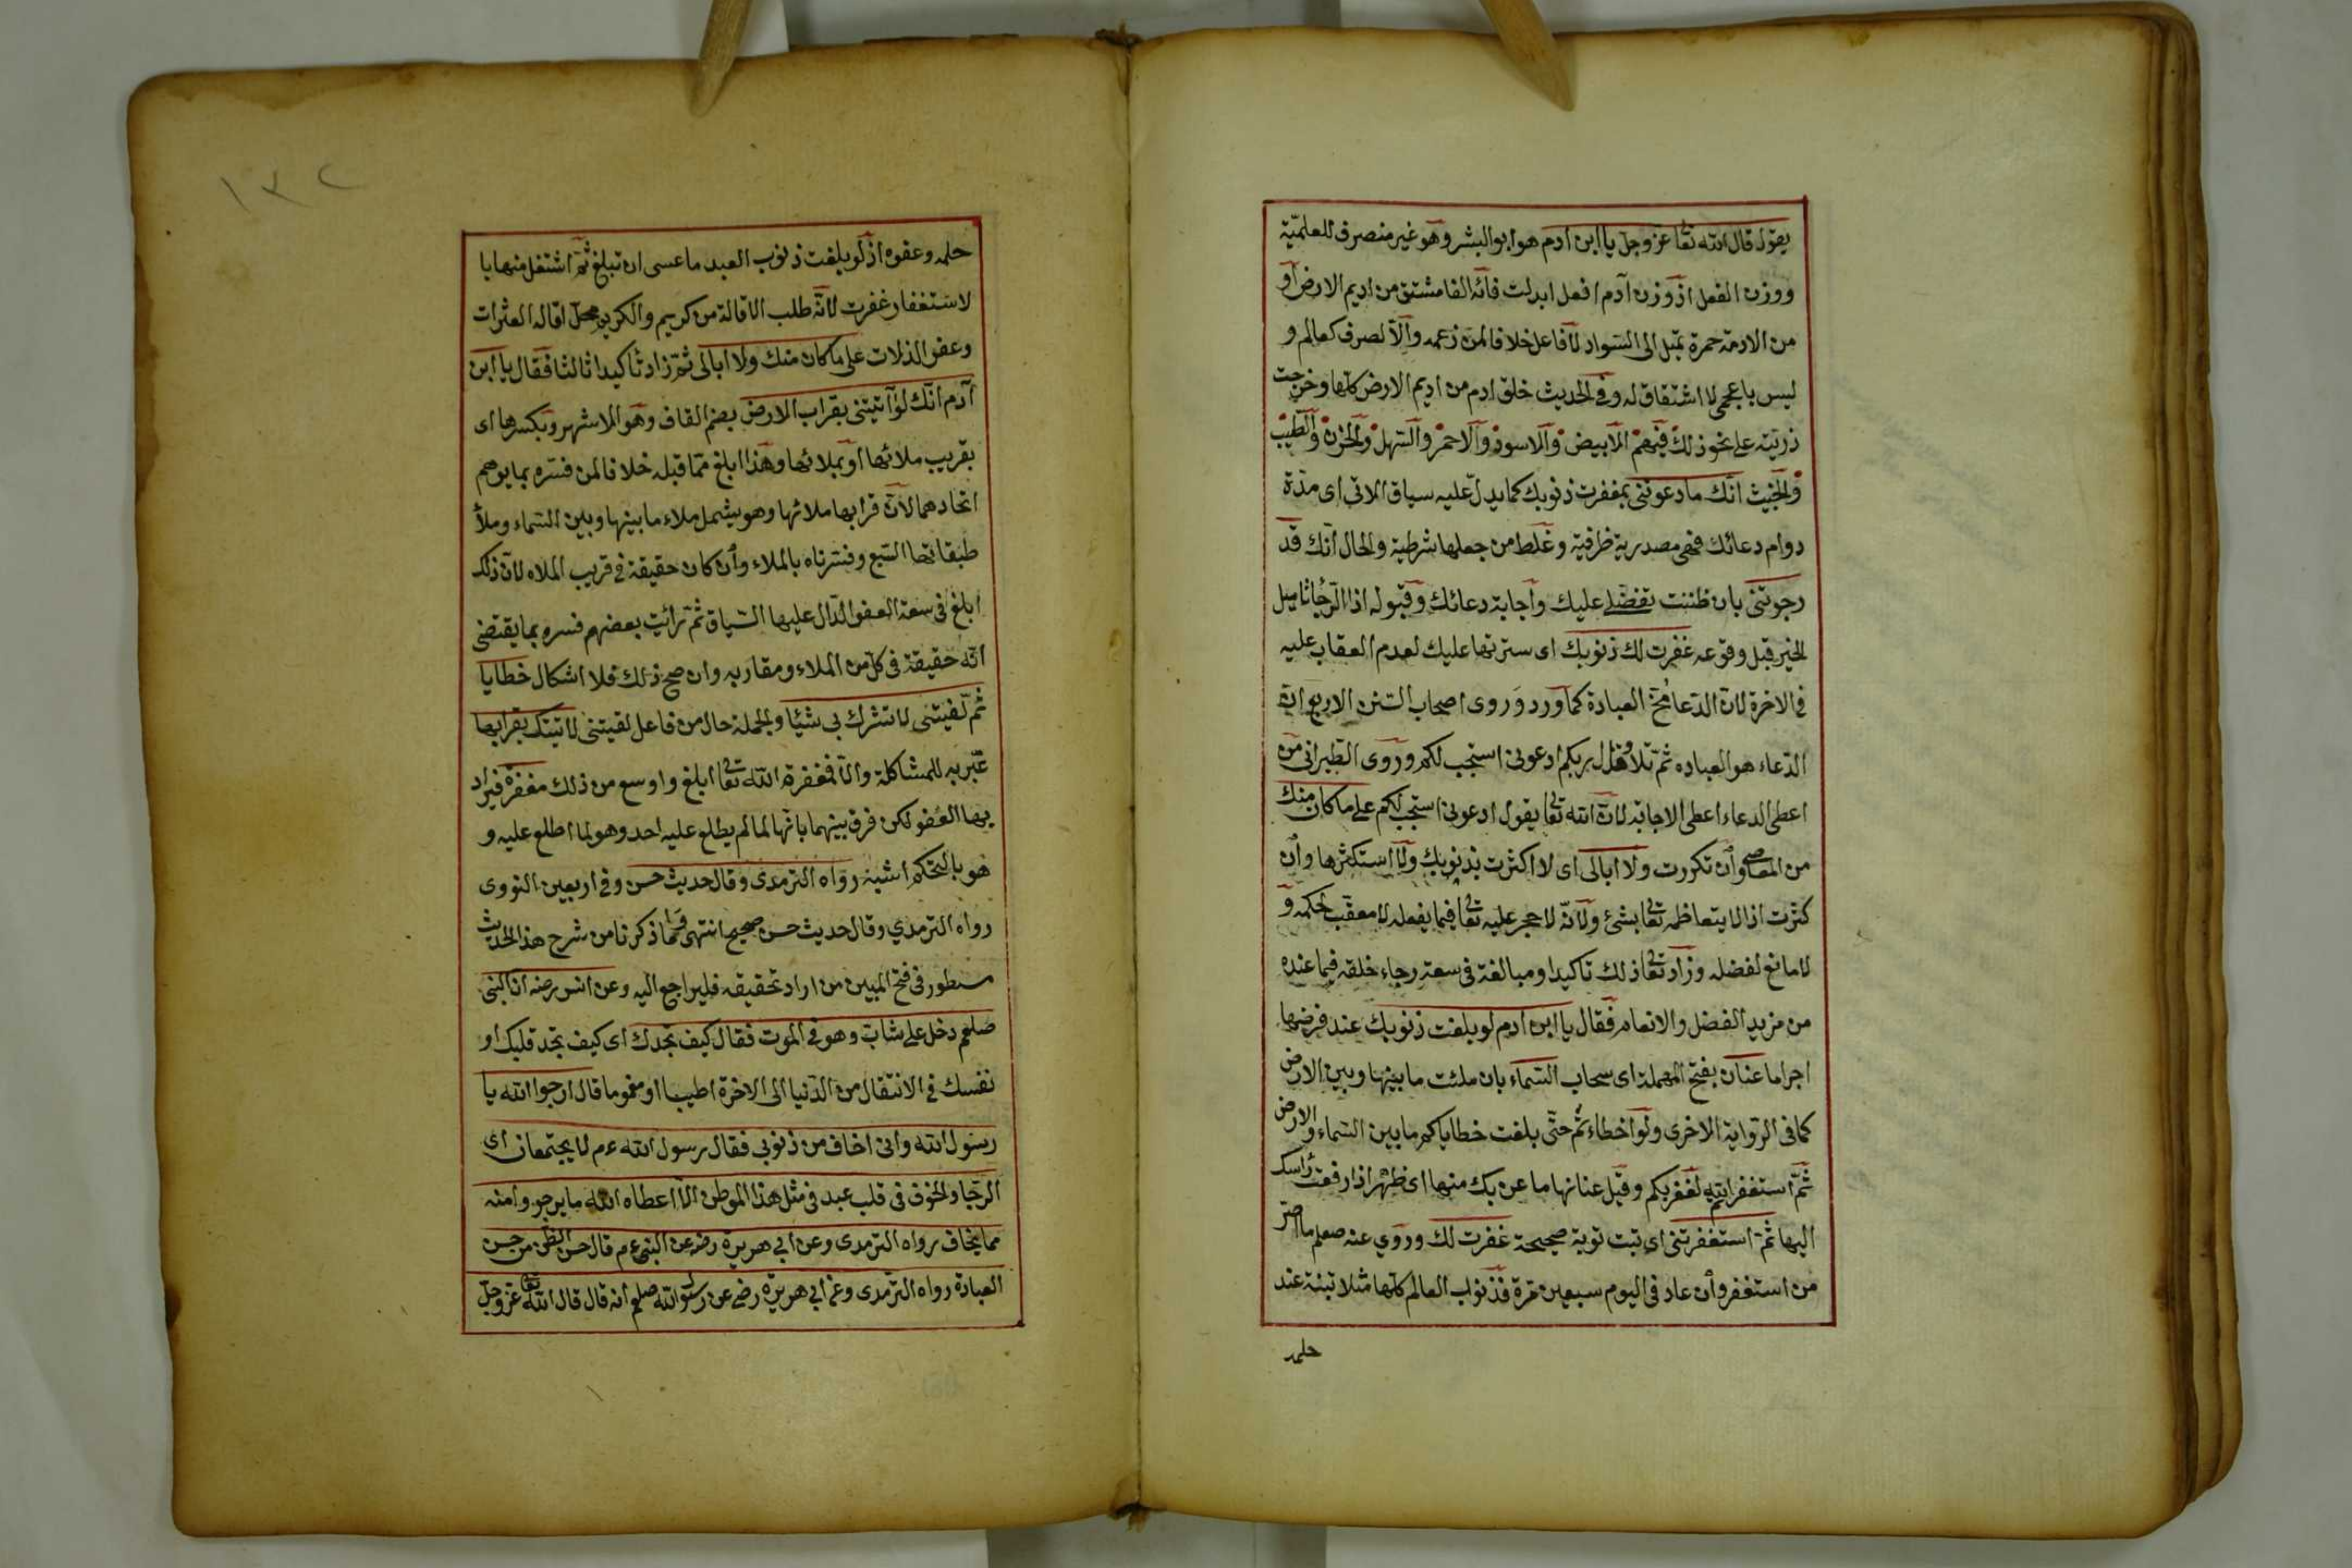 يقول قال الله تعا عز وجل يا ابن ادم هو ابو البشر وهو غير منصرف للعلميّة
ووزن الفعل اذ وزن آدم افعل ابدلت فائه الفا مشتق من اديم الارض او
من الادمة حمرة تميل الى السّواد لا فاعل خلافا لمن زعمه والّا لصرف كعالم و
ليس باعجمى لا اشتقاق له وفى الحديث خلق ادم من اديم الارض كلّها وخرجت
ذريّته على نحو ذلك فيهم الابيض والاسود والاحمر والسّهل والحزن والطّيب
والخبيث انّك ما دعوتنى بمغفرت ذنوبك كما يدل عليه سياق الاتى اى مدّة
دوام دعائك فهى مصدرية ظرفيّة وغلط من جعلها شرطية والحال انّك قد
رجوتنى بان ظننت تفضلى عليك واجابة دعائك وقبوله اذ الرّجا تاميل
الخير قبل وقوعه غفرت لك ذنوبك اى سترتها عليك لعدم العقاب عليه
فى الاخرة لان الدّعا مخ العبادة كما ورد وروى اصحاب السّنن الاربع ان
الدّعاء هو العباده ثمّ تلا وقال ربكم ادعونى استجب لكم وروى الطبرانى من
اعطى الدعاء اعطى الاجابة لان الله تعا يقول ادعونى استجب لكم على ما كان منك
من المعاصى وان تكررت ولا ابالى اى لا اكثرت بذنوبك ولا استكثرها وان
كثرت اذ لا يتعاظمه تعا بشئ ولانّه لا حجر عليه تعا فيما يفعله لا معقّب لحكمه و
لا مانع لفضله وزاد تعا ذلك تاكيدا ومبالغة فى سعة رجاء خلقه فيما عنده
من مزيد الفضل والانعام فقال يا ابن ادم لو بلغت ذنوبك عند فرضها
اجراما عنان بفتح المهملة اى سحاب السّماء بان ملئت ما بينها وبين الارض
كما فى الرّواية الاخرى ولو اخطاءتم حتّى بلغت خطاياكم ما بين السّماء والارض
ثمّ استغفرتم لغفر لكم وقيل عنانها ما عن بك منها اى ظهر اذا رفعت راسك
اليها ثمّ استغفرتنى اى تبت توبة صحيحة غفرت لك وروي عنه صعلم ما اصرّ
من استغفر وان عاد فى اليوم سبعين مرّة فذنوب العالم كلّها متلاشية عند
حلمه
١٣٢
حلمه وعفوه اذ لو بلغت ذنوب العبد ما عسى ان تبلغ ثمّ اشتغل منها با
لاستغفار غفرت لانّه طلب الاقالة من كريم والكريم محلّ اقاله العثرات
وعفو الذلات على ما كان منك ولا ابالى ثمّ زاد تاكيدا ثالثا فقال يا ابن
آدم انّك لو آتيتنى بقراب الارض بضم القاف وهو الاشهر وبكسرها اى
بقريب ملائها او بملائها وهذا ابلغ ممّا قبله خلافا لمن فسّره بما يوهم
اتحادهما لانّ قرابها ملائها وهو يشمل ملاء ما بينها وبين السّماء وملأ
طبقاتها السّبع وفسّرناه بالملاء وان كان حقيقة فى قريب الملاه لان ذلك
ابلغ فى سعة العفو الدّال عليها السّياق ثمّ رائيت بعضهم فسره بما يقتضى
انّه حقيقة فى كلّ من الملاء ومقاربه وان صح ذلك فلا اشكال خطايا
ثمّ لقيتنى لا تشرك بى شيئا والجملة حال من فاعل لقيتنى لاتيتك بقرابها
عبّر به للمشاكلة والّا فمغفرة الله تعا ابلغ واوسع من ذلك مغفرة فيراد
بها العفو لكن فرق بينهما بانّها لما لم يطلع عليه احد وهو لما اطلع عليه و
هو بالتحكم اشبه رواه الترمدى وقال حديث حسن وفى اربعين النووى
رواه الترمدي وقال حديث حسن صحيح انتهى وما ذكرنا من شرح هذ الحديث
مسطور فى فتح المبين من اراد تحقيقه فليراجع اليه وعن انس رضه ان النبى
صلعم دخل على شابّ وهو فى الموت فقال كيف تجدك اى كيف تجد قلبك او
نفسك فى الانتقال من الدّنيا الى الاخرة اطيبا او مغموما قال ارجوا الله يا
رسول الله وانى اخاف من ذنوبى فقال رسول الله ءم لا يجتمعان اى
الرّجا والخوف فى قلب عبد فى مثل هذا الموطن الّا اعطاه الله ما يرجو وامنه
مما يخاف رواه الترمدى وعن ابي هريرة رضه عن النبى ءم قال حسن الظنّ من حسن
العبادة رواه الترّمدى وعن ابي هريرّة رضى عن رسول الله صلعم انه قال قال الله تعا عز وجلّ